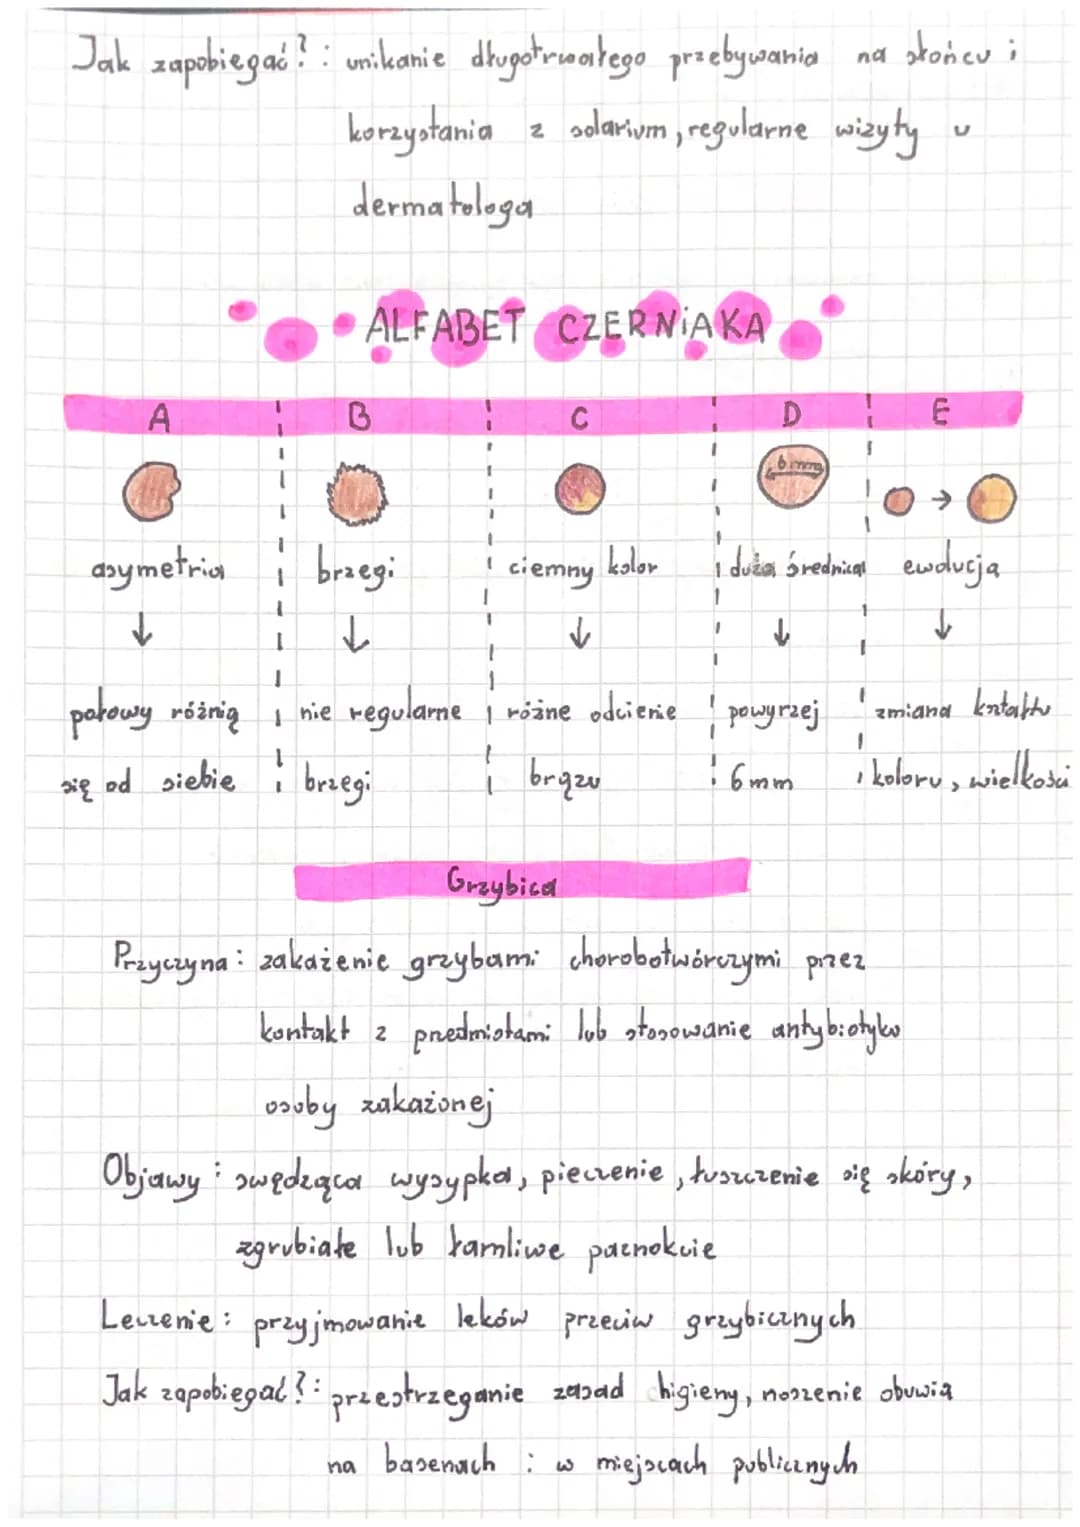 Jak zapobiegać?: unikanie długotrwałego przebywania na słońcu i
korzystania z solarium, regularne wizyty u
dermatologa
ALFABET CZERNiAKA
A B C D E
6 mm
asymetria brzegi ciemny kolor duża średnica ewolucja
połowy różnią nie regularne różne odcienie powyrzej zmiana kształtu
się od siebie brzegi brązu 6mm koloru, wielkości
Grzybica
Przyczyna: zakażenie grzybami chorobotwórczymi przez
kontakt z przedmiotami lub stosowanie antybiotyku
osoby zakażonej
Objawy: swędząca wysypka, pieczenie, łuszczenie się skóry,
zgrubiałe lub łamliwe paznokcie
Leczenie: przyjmowanie leków przeciw grzybicznych
Jak zapobiegać?: przestrzeganie zasad higieny, noszenie obuwia
na basenach i w miejscach publicznych